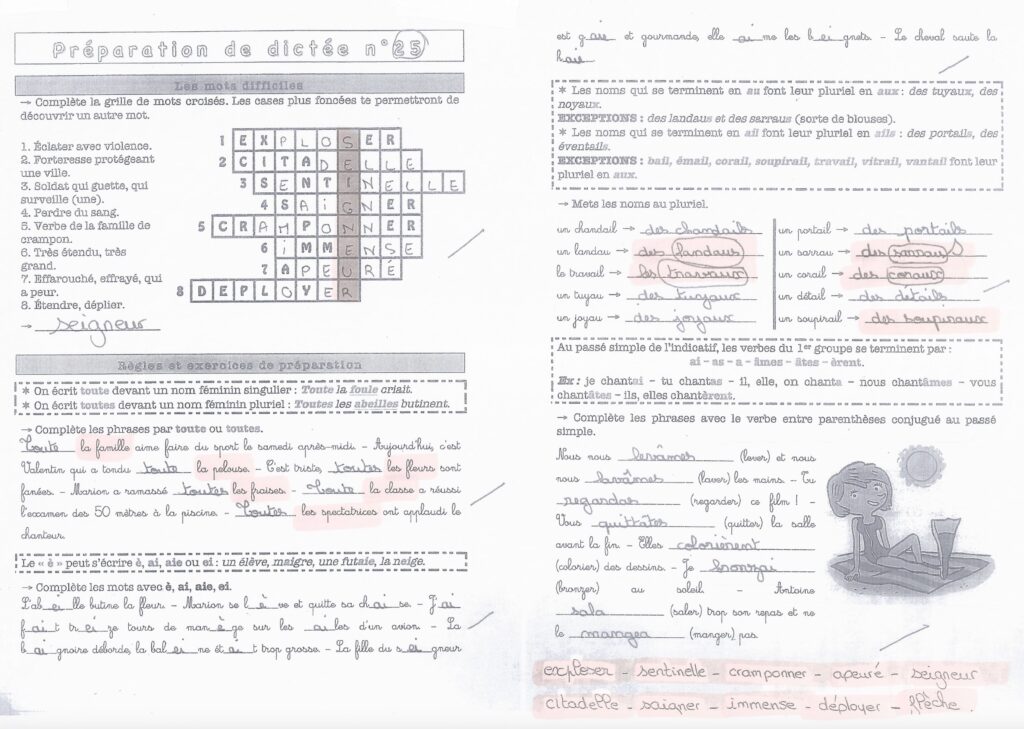 Préparation de dictée n°25
Les mots difficiles
→ Complète la grille de mots croisés. Les cases plus foncées te permettront de
découvrir un autre mot.
1. Éclater avec violence.
2. Forteresse protégeant
une ville.
3. Soldat qui guette, qui
surveille (une).
4. Perdre du sang.
5. Verbe de la famille de
crampon.
6. Très étendu, très
grand.
7. Effarouché, effrayé, qui
a peur.
8. Étendre, déplier.
1 EXPLOSER
2 CITADELLE
3 SENTINELLE
4 SAiGNER
5 CRAMPONNER
6 iMMENSE
7 APEURÉ
8 DEPLOYER
→ seigneur
Règles et exercices de préparation
* On écrit toute devant un nom féminin singulier : Toute la foule criait.
* On écrit toutes devant un nom féminin pluriel : Toutes les abeilles butinent.
→ Complète les phrases par toute ou toutes.
Toute la famille aime faire du sport le samedi après-midi. - Aujourd'hui, c'est
Valentin qui a tondu toute la pelouse. - C'est triste, toutes les fleurs sont
fanées. - Marion a ramassé toutes les fraises. - Toute la classe a réussi
l'examen des 50 mètres à la piscine. - Toutes les spectatrices ont applaudi le
chanteur.
Le « è » peut s'écrire è, ai, aie ou ei : un élève, maigre, une futaie, la neige.
→ Complète les mots avec è, ai, aie, ei.
L'ab ei lle butine la fleur. - Marion se l è ve et quitte sa ch ai se. - J' ai
f ai t tr ei ze tours de man è ge sur les ai les d'un avion. - La
b ai gnoire déborde, la bal ei ne ét ai t trop grosse. - La fille du s ei gneur
est g aie et gourmande, elle ai me les b ei gnets. - Le cheval saute la
h aie
* Les noms qui se terminent en au font leur pluriel en aux : des tuyaux, des
noyaux.
EXCEPTIONS : des landaus et des sarraus (sorte de blouses).
* Les noms qui se terminent en ail font leur pluriel en ails : des portails, des
éventails.
EXCEPTIONS : bail, émail, corail, soupirail, travail, vitrail, vantail font leur
pluriel en aux.
→ Mets les noms au pluriel.
un chandail → des chandails
un landau → des landaus
le travail → les travaux
un tuyau → des tuyaux
un joyau → des joyaux
un portail → des portails
un sarrau → des sarraus
un corail → des coraux
un détail → des détails
un soupirail → des soupiraux
Au passé simple de l'indicatif, les verbes du 1er groupe se terminent par :
ai - as - a - âmes - âtes - èrent.
Ex : je chantai - tu chantas - il, elle, on chanta - nous chantâmes - vous
chantâtes - ils, elles chantèrent.
→ Complète les phrases avec le verbe entre parenthèses conjugué au passé
simple.
Nous nous levâmes (lever) et nous
nous lavâmes (laver) les mains. - Tu
regardas (regarder) ce film ! -
Vous quittâtes (quitter) la salle
avant la fin. - Elles colorièrent
(colorier) des dessins. - Je bronzai
(bronzer) au soleil. - Antoine
sala (saler) trop son repas et ne
le mangea (manger) pas.
exploser - sentinelle - cramponner - apeuré - seigneur
citadelle - saigner - immense - déployer - flèche.